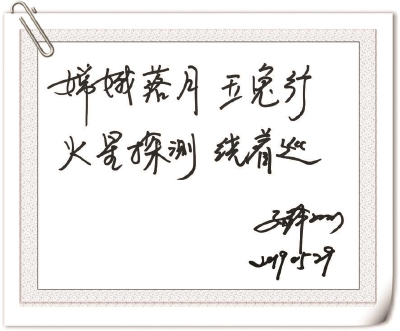 嫦娥落月 玉兔行
火星探测 绕着巡
2019.05.29